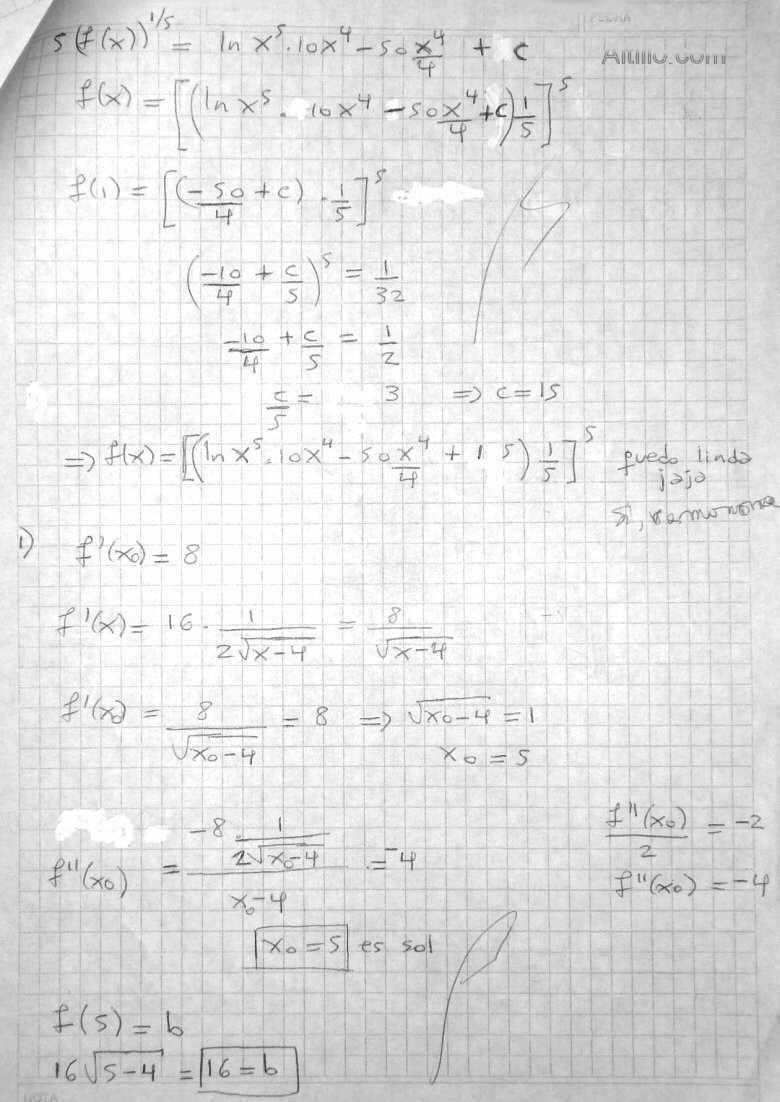 FECHA
Altillo.com
5(f(x))^{1/5} = ln x^5 · 10x^4 - 50 x^4/4 + c
f(x) = [(ln x^5 · 10x^4 - 50 x^4/4 + c) 1/5]^5
f(1) = [(-50/4 + c) · 1/5]^5
(-10/4 + c/5)^5 = 1/32
-10/4 + c/5 = 1/2
c/5 = 3 => c = 15
=> f(x) = [(ln x^5 · 10x^4 - 50 x^4/4 + 15) 1/5]^5 quedo linda
jaja
si,
1) f'(x0) = 8
f'(x) = 16 · 1/(2√(x-4)) = 8/√(x-4)
f'(x0) = 8/√(x0-4) = 8 => √(x0-4) = 1
x0 = 5
f''(x0) = (-8 · 1/(2√(x0-4)))/(x0-4) = -4
f''(x0)/2 = -2
f''(x0) = -4
x0 = 5 es sol
f(5) = b
16√(5-4) = 16 = b
NOTA